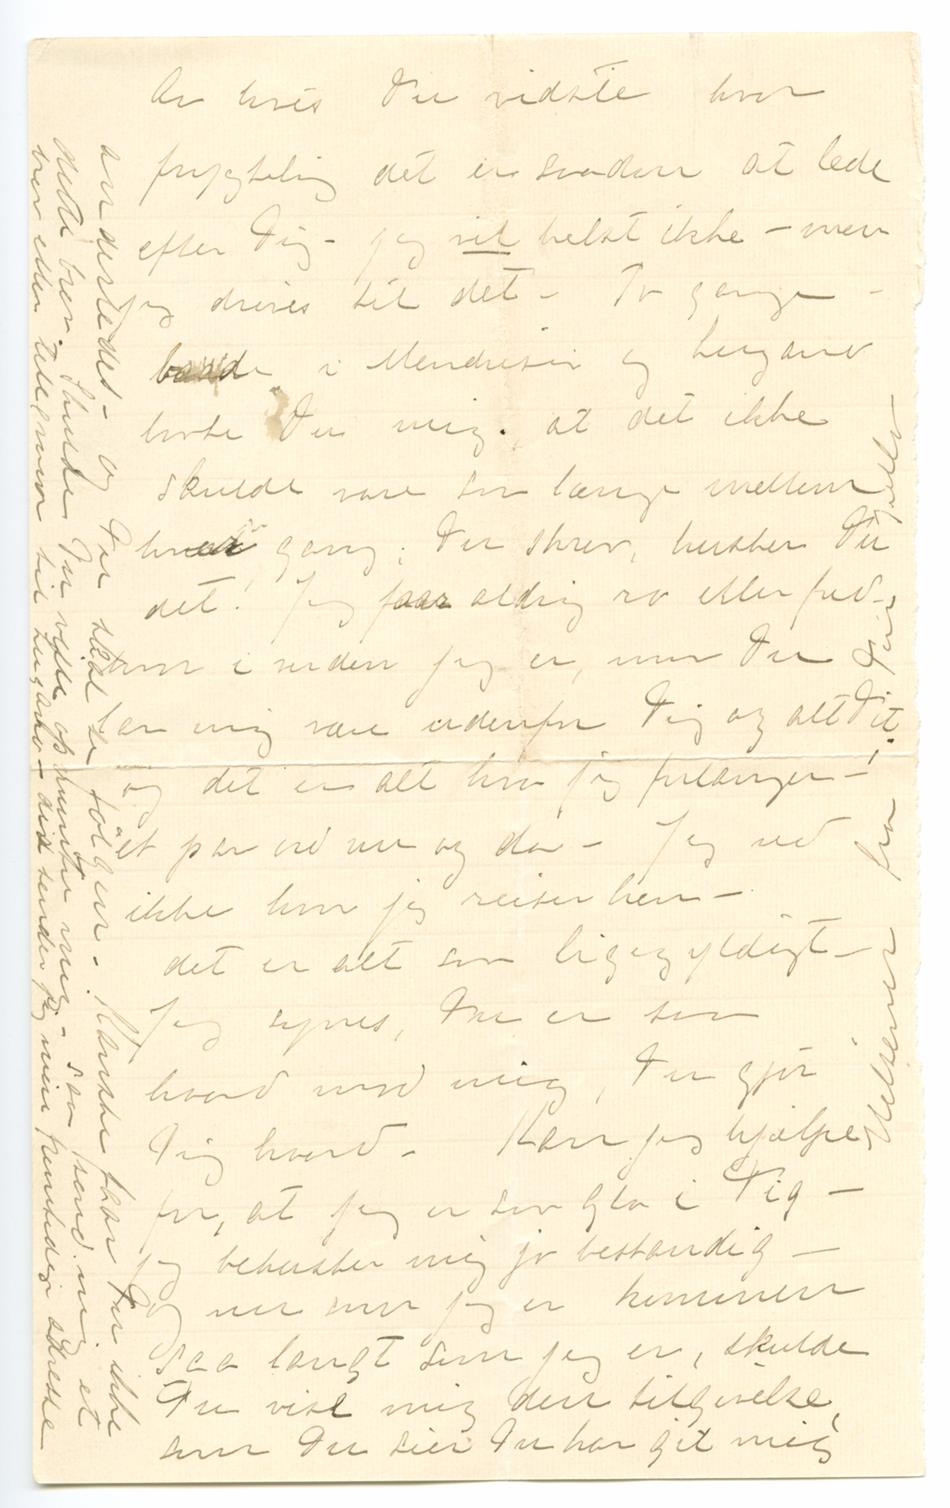 Aa hvis Du vidste hvor
frygtelig det er saadan at lede
efter Dig – jeg vil helst ikke – men
jeg drives til det – To gange –
baade i Mendrisio og Lugano
lovte Du mig, at det ikke
skulde være saa længe mellem
hver gang; Du skrev, husker Du
det! Jeg faar aldrig ro eller fred –
hvor i verden jeg er, naar Du
lar mig være udenfor Dig og alt Dit.
og det er alt hva jeg forlanger –
et par ord nu og da – Jeg ved
ikke hvor jeg reiser hen –
det er alt saa ligegyldigt –
Jeg synes, Du er saa
haard mod mig, Du gjør
Dig haard – Kan jeg hjælpe
for, at jeg er saa gla i Dig –
jeg behersker mig jo bestandig –
Og nu naar jeg er kommen
saa langt som jeg er, skulde
Du vise mig den tilgivelse,
som Du sier Du har git mig
Hilsener fra Din Tulla
andesteds – og Du skal se følgen – Kanske har Du ikke
dette brev. Skulde Du ville opmuntre mig – saa send mig et
brev eller telegram til Lugano – der sender jeg min fremtidige adresse